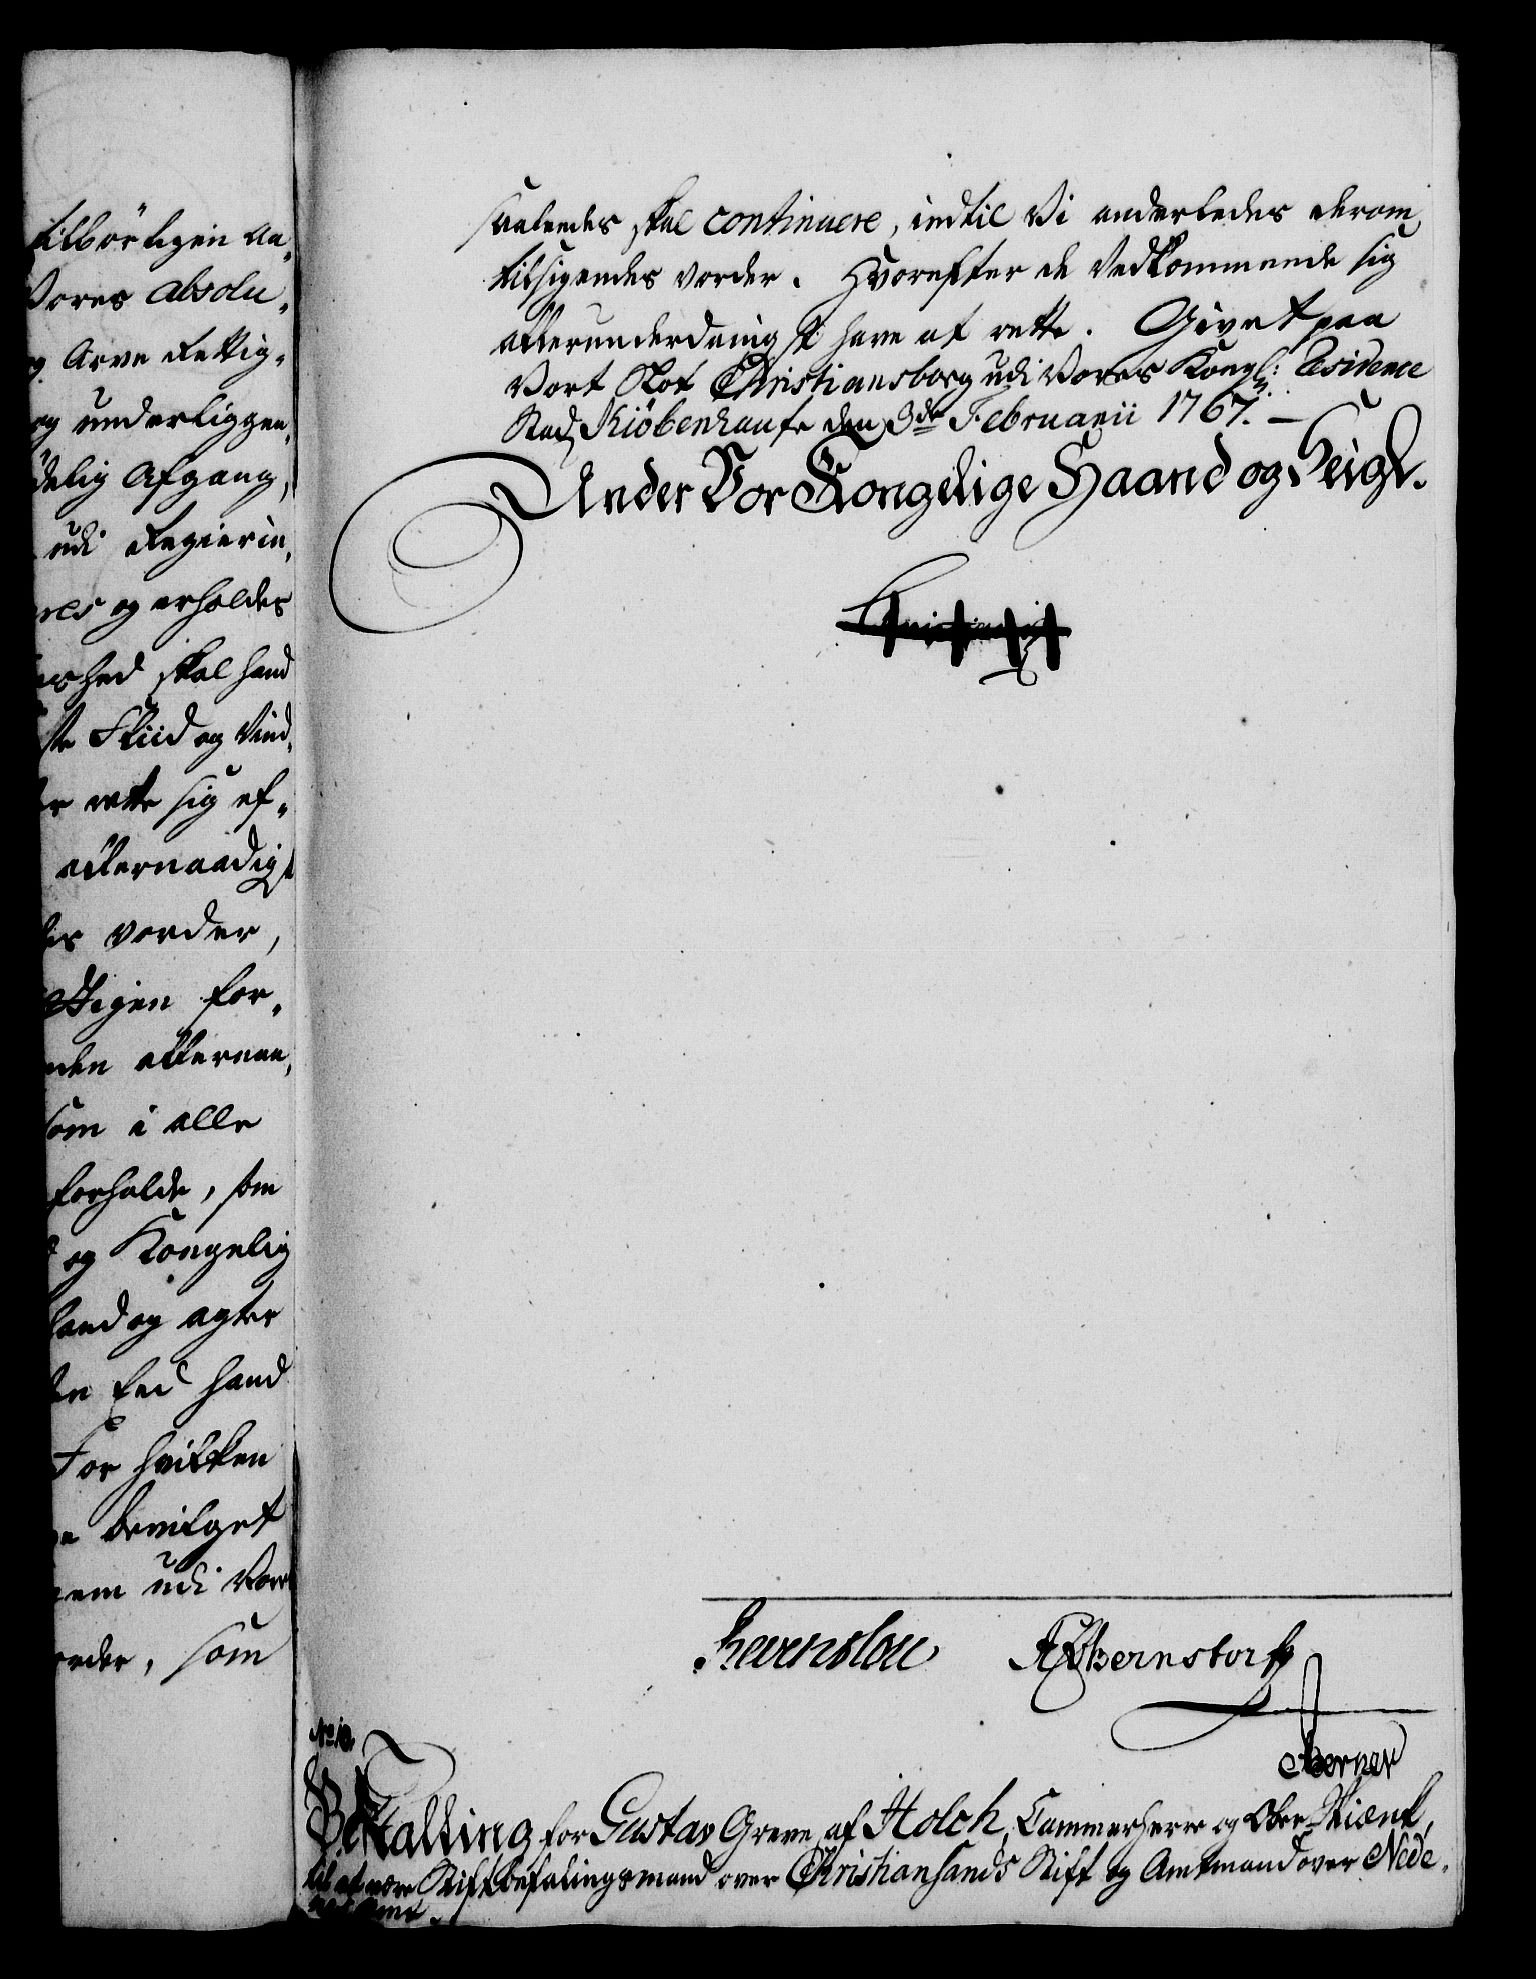 tilbørligen An-
Vores absolu-
og Arve Rettig-
og underliggen-
delig Afgang,
udi Regierin-
res og erholdes
hed skal hand
Fliid og Vind-
rette sig ef-
allernaadigst
vorder,
for-
allernaa-
som i alle
forholde, som
og Kongelig
hand og agter
Eed hand
For hvilken
bevilget
udi Vor
som
saaledes skal continuere, indtil Vi anderledes derom
tilsigendes vorder. Hvorefter de Vedkommende sig
allerunderdanigst have at rette. Givet paa
Vort Slot Christiansborg udi Vores Kongl: Residence
Stad Kiöbenhaufn den 3de Februarii 1767. —
Under Vor Kongelige Haand og Seigl.
Christian
Reventlou Bernstorff
Berner
No 10.
Bestalling for Gustav Greve af Holck, Cammerherre og Ober-Skienk,
til at være Stiftbefalingsmand over Christiansands Stift og Amtmand over Nede-
nes Amt.